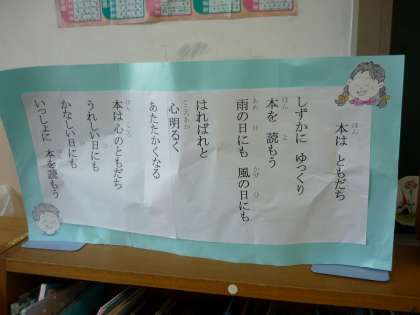 本は ともだち
しずかに ゆっくり
本を 読もう
雨の日にも 風の日にも
はればれと
心 明るく
あたたかくなる
本は 心のともだち
うれしい日にも
かなしい日にも
いっしょに 本を読もう